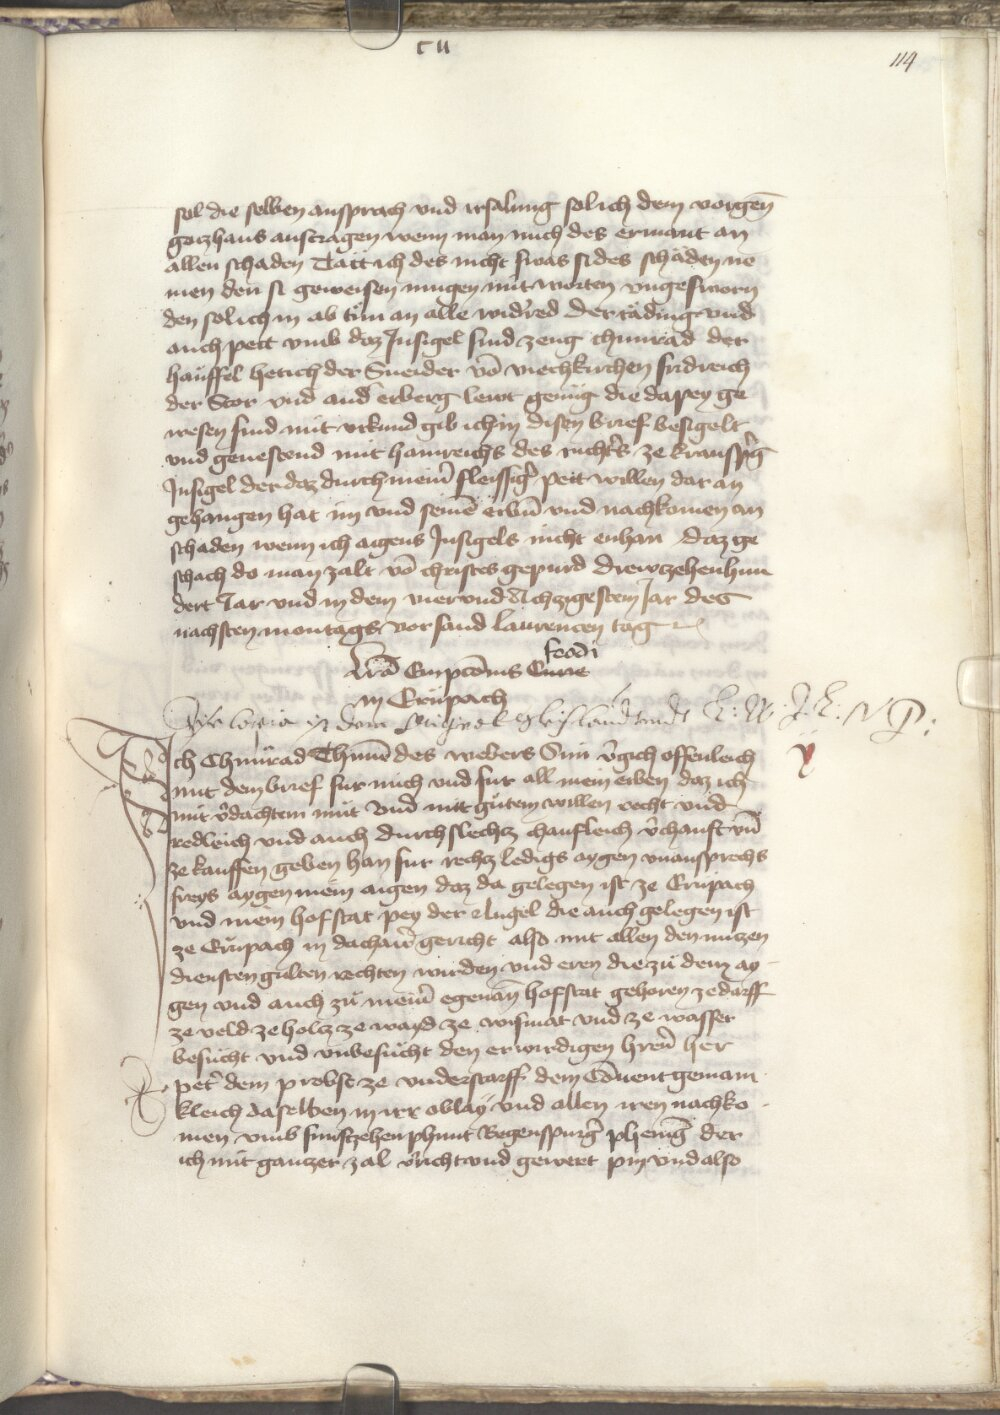 cii
114
sol die selben ansprach und irsalung sol ich dem vorgen̄
gotzhaus austragen wenn man mich des ermant an
allen schaden Tätt ich des nicht swas si des schäden ne
men den si geweisen mugen mit worten ungesworn
den sol ich in ab tün an alle wid'red Der täding und
auch pett umb daz Insigel sind zeug chunrad der
häuffel hetich der Sneider vō viechkirchen fridreich
der Stor und and' erberg lewt genüg die dapey ge
wesen sind mit urkund gib ich in disen brief besigelt
und geuestend mit hainreichs des richt's ze kranspg
Insigel der daz durch mein' fleissig' pett willen dar an
gehangen hat im und seinē erbn̄ und nachkomen an
schaden wenn ich aigens Insigels nicht enhan daz ge
schach do man zalt vō christes gepurd drewzehenhun
dert Jar und in dem vier und Achzigestem Jar des
nachsten montags vor sand laurencen tag
feodi
Lrā Empcōnis Curie
in Erupach
Ich Chünrad Thum̄ des webers Sun v'gich offenleich
mit dem brief fur mich und fur all mein erben daz ich
mit v'dachtem müt Und mit gütem willen recht und
redleich und auch durchslechtz chaufleich v'chauft un̄
ze kauffen geben han fur rechtz ledigs aygen unansprechs
freys aygen mein aigen daz da gelegen ist ze Erupach
und mein hofstat pey der Angel die auch gelegen ist
ze Erupach in dachaw' gericht also mit allen den nutzen
diensten gulten rechten wirden und eren die zü dem ay
gen und auch zü mein' egenan̄ hofstat gehoren ze darff
ze veld ze holtz ze wayd ze wismat und ze wasser
besücht und unbesücht den erwirdigen hren̄ her
pet' dem probst ze understarff dem Cōuent gemain
kleich daselben in irr oblay und allen iren nachko
men umb funfzehen phunt Regenspurg' phenig der
ich mit gantzer zal v'richt und gewert pin und also